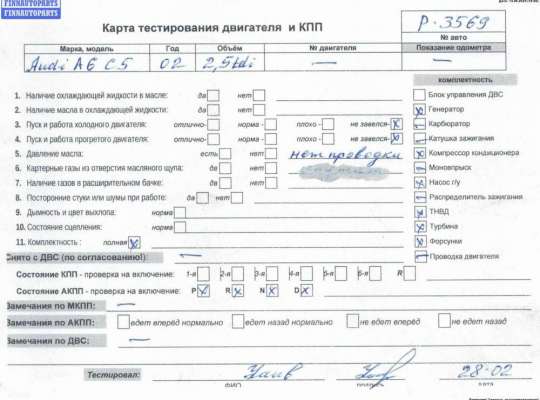 FINNAUTOPARTS
FINNAUTOPARTS
Карта тестирования двигателя и КПП
Р-3569
№ авто
Марка, модель Год Объём № двигателя Показание одометра
Audi A6 C5 02 2,5tdi — —
комплектность
1. Наличие охлаждающей жидкости в масле: да нет
Блок управления ДВС
2. Наличие масла в охлаждающей жидкости: да нет
Генератор
3. Пуск и работа холодного двигателя: отлично- норма - плохо - не завелся-
Карбюратор
4. Пуск и работа прогретого двигателя: отлично- норма - плохо - не завелся-
Катушка зажигания
5. Давление масла: есть нет нет проводки
Компрессор кондиционера
6. Картерные газы из отверстия масляного щупа: да нет
Моновпрыск
7. Наличие газов в расширительном бачке: да нет
Насос г/у
8. Посторонние стуки или шумы при работе: да нет
Распределитель зажигания
9. Дымность и цвет выхлопа: норма
ТНВД
10. Состояние сцепления: норма
Турбина
11. Комплектность : полная
Форсунки
Снято с ДВС (по согласованию!): —
Проводка двигателя
Состояние КПП - проверка на включение: 1-я 2-я 3-я 4-я 5-я 6-я R
Состояние АКПП - проверка на включение: P R N D
Замечания по МКПП: —
Замечания по АКПП: едет вперёд нормально едет назад нормально не едет вперёд не едет назад
Замечания по ДВС: —
Тестировал: 28-02
ФИО подпись дата